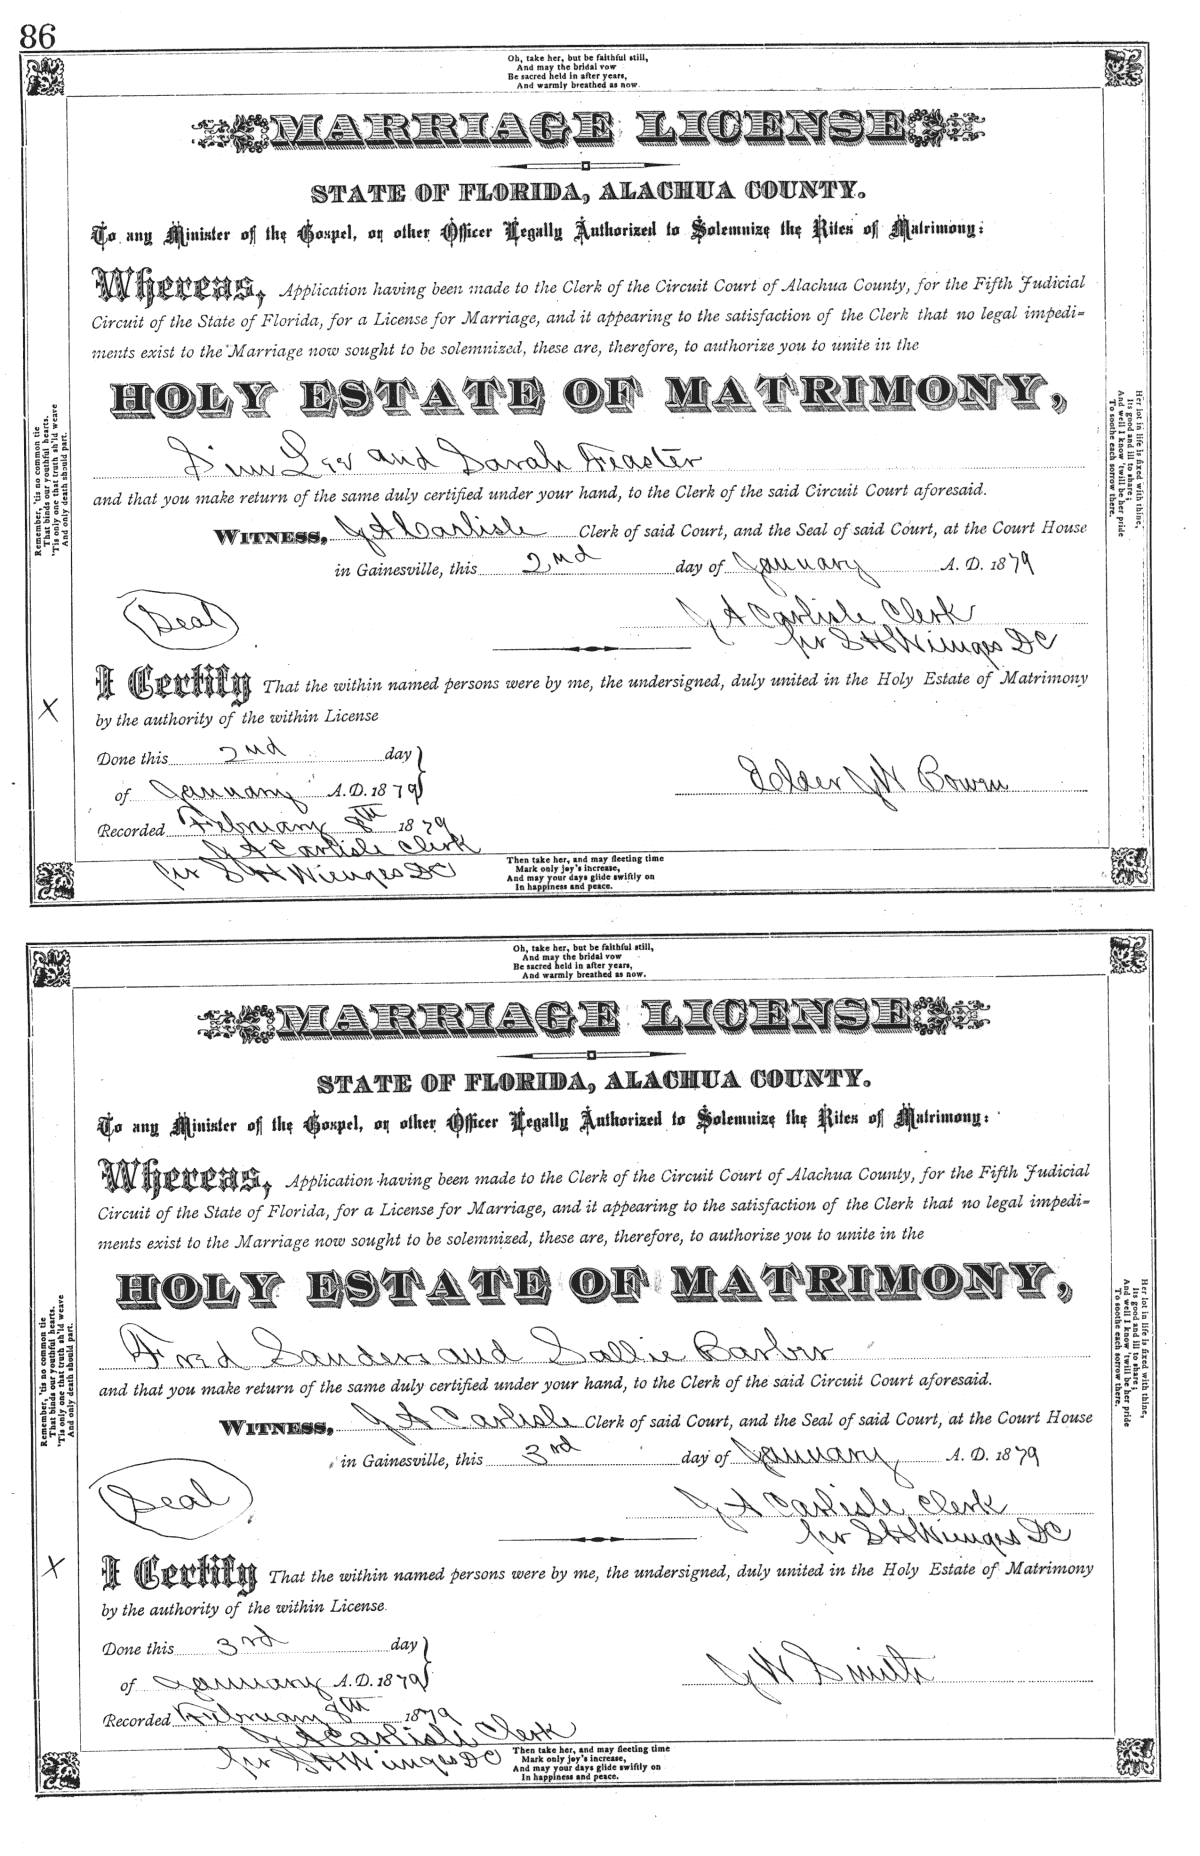 86
Oh, take her, but be faithful still,
And may the bridal vow
Be sacred held in after years,
And warmly breathed as now.
MARRIAGE LICENSE
STATE OF FLORIDA, ALACHUA COUNTY.
To any Minister of the Gospel, or other Officer Legally Authorized to Solemnize the Rites of Matrimony:
Whereas, Application having been made to the Clerk of the Circuit Court of Alachua County, for the Fifth Judicial
Circuit of the State of Florida, for a License for Marriage, and it appearing to the satisfaction of the Clerk that no legal impedi=
ments exist to the Marriage now sought to be solemnized, these are, therefore, to authorize you to unite in the
HOLY ESTATE OF MATRIMONY,
Lee and Sarah Feaster
and that you make return of the same duly certified under your hand, to the Clerk of the said Circuit Court aforesaid.
WITNESS, J A Carlisle Clerk of said Court, and the Seal of said Court, at the Court House
in Gainesville, this 2nd day of January A. D. 1879
Seal
J A Carlisle Clerk
per S H Wienges DC
I Certify That the within named persons were by me, the undersigned, duly united in the Holy Estate of Matrimony
by the authority of the within License
X
Done this 2nd day
of January A. D. 1879
Elder J W Bowen
Recorded February 8th 1879
J A Carlisle Clerk
per S H Wienges DC
Then take her, and may fleeting time
Mark only joy's increase,
And may your days glide swiftly on
In happiness and peace.
Remember, 'tis no common tie
That binds our youthful hearts.
'Tis only one that truth sh'ld weave
And only death should part.
Her lot in life is fixed with thine,
Its good and ill to share;
And well I know 'twill be her pride
To soothe each sorrow there.
Oh, take her, but be faithful still,
And may the bridal vow
Be sacred held in after years,
And warmly breathed as now.
MARRIAGE LICENSE
STATE OF FLORIDA, ALACHUA COUNTY.
To any Minister of the Gospel, or other Officer Legally Authorized to Solemnize the Rites of Matrimony:
Whereas, Application having been made to the Clerk of the Circuit Court of Alachua County, for the Fifth Judicial
Circuit of the State of Florida, for a License for Marriage, and it appearing to the satisfaction of the Clerk that no legal impedi=
ments exist to the Marriage now sought to be solemnized, these are, therefore, to authorize you to unite in the
HOLY ESTATE OF MATRIMONY,
Fred Sanders and Sallie Barber
and that you make return of the same duly certified under your hand, to the Clerk of the said Circuit Court aforesaid.
WITNESS, J A Carlisle Clerk of said Court, and the Seal of said Court, at the Court House
in Gainesville, this 3rd day of January A. D. 1879
Seal
J A Carlisle Clerk
per S H Wienges DC
X
I Certify That the within named persons were by me, the undersigned, duly united in the Holy Estate of Matrimony
by the authority of the within License.
Done this 3rd day
of January A. D. 1879
J W Smith
Recorded February 8th 1879
J A Carlisle Clerk
per S H Wienges DC
Then take her, and may fleeting time
Mark only joy's increase,
And may your days glide swiftly on
In happiness and peace.
Remember, 'tis no common tie
That binds our youthful hearts.
'Tis only one that truth sh'ld weave
And only death should part.
Her lot in life is fixed with thine,
Its good and ill to share;
And well I know 'twill be her pride
To soothe each sorrow there.